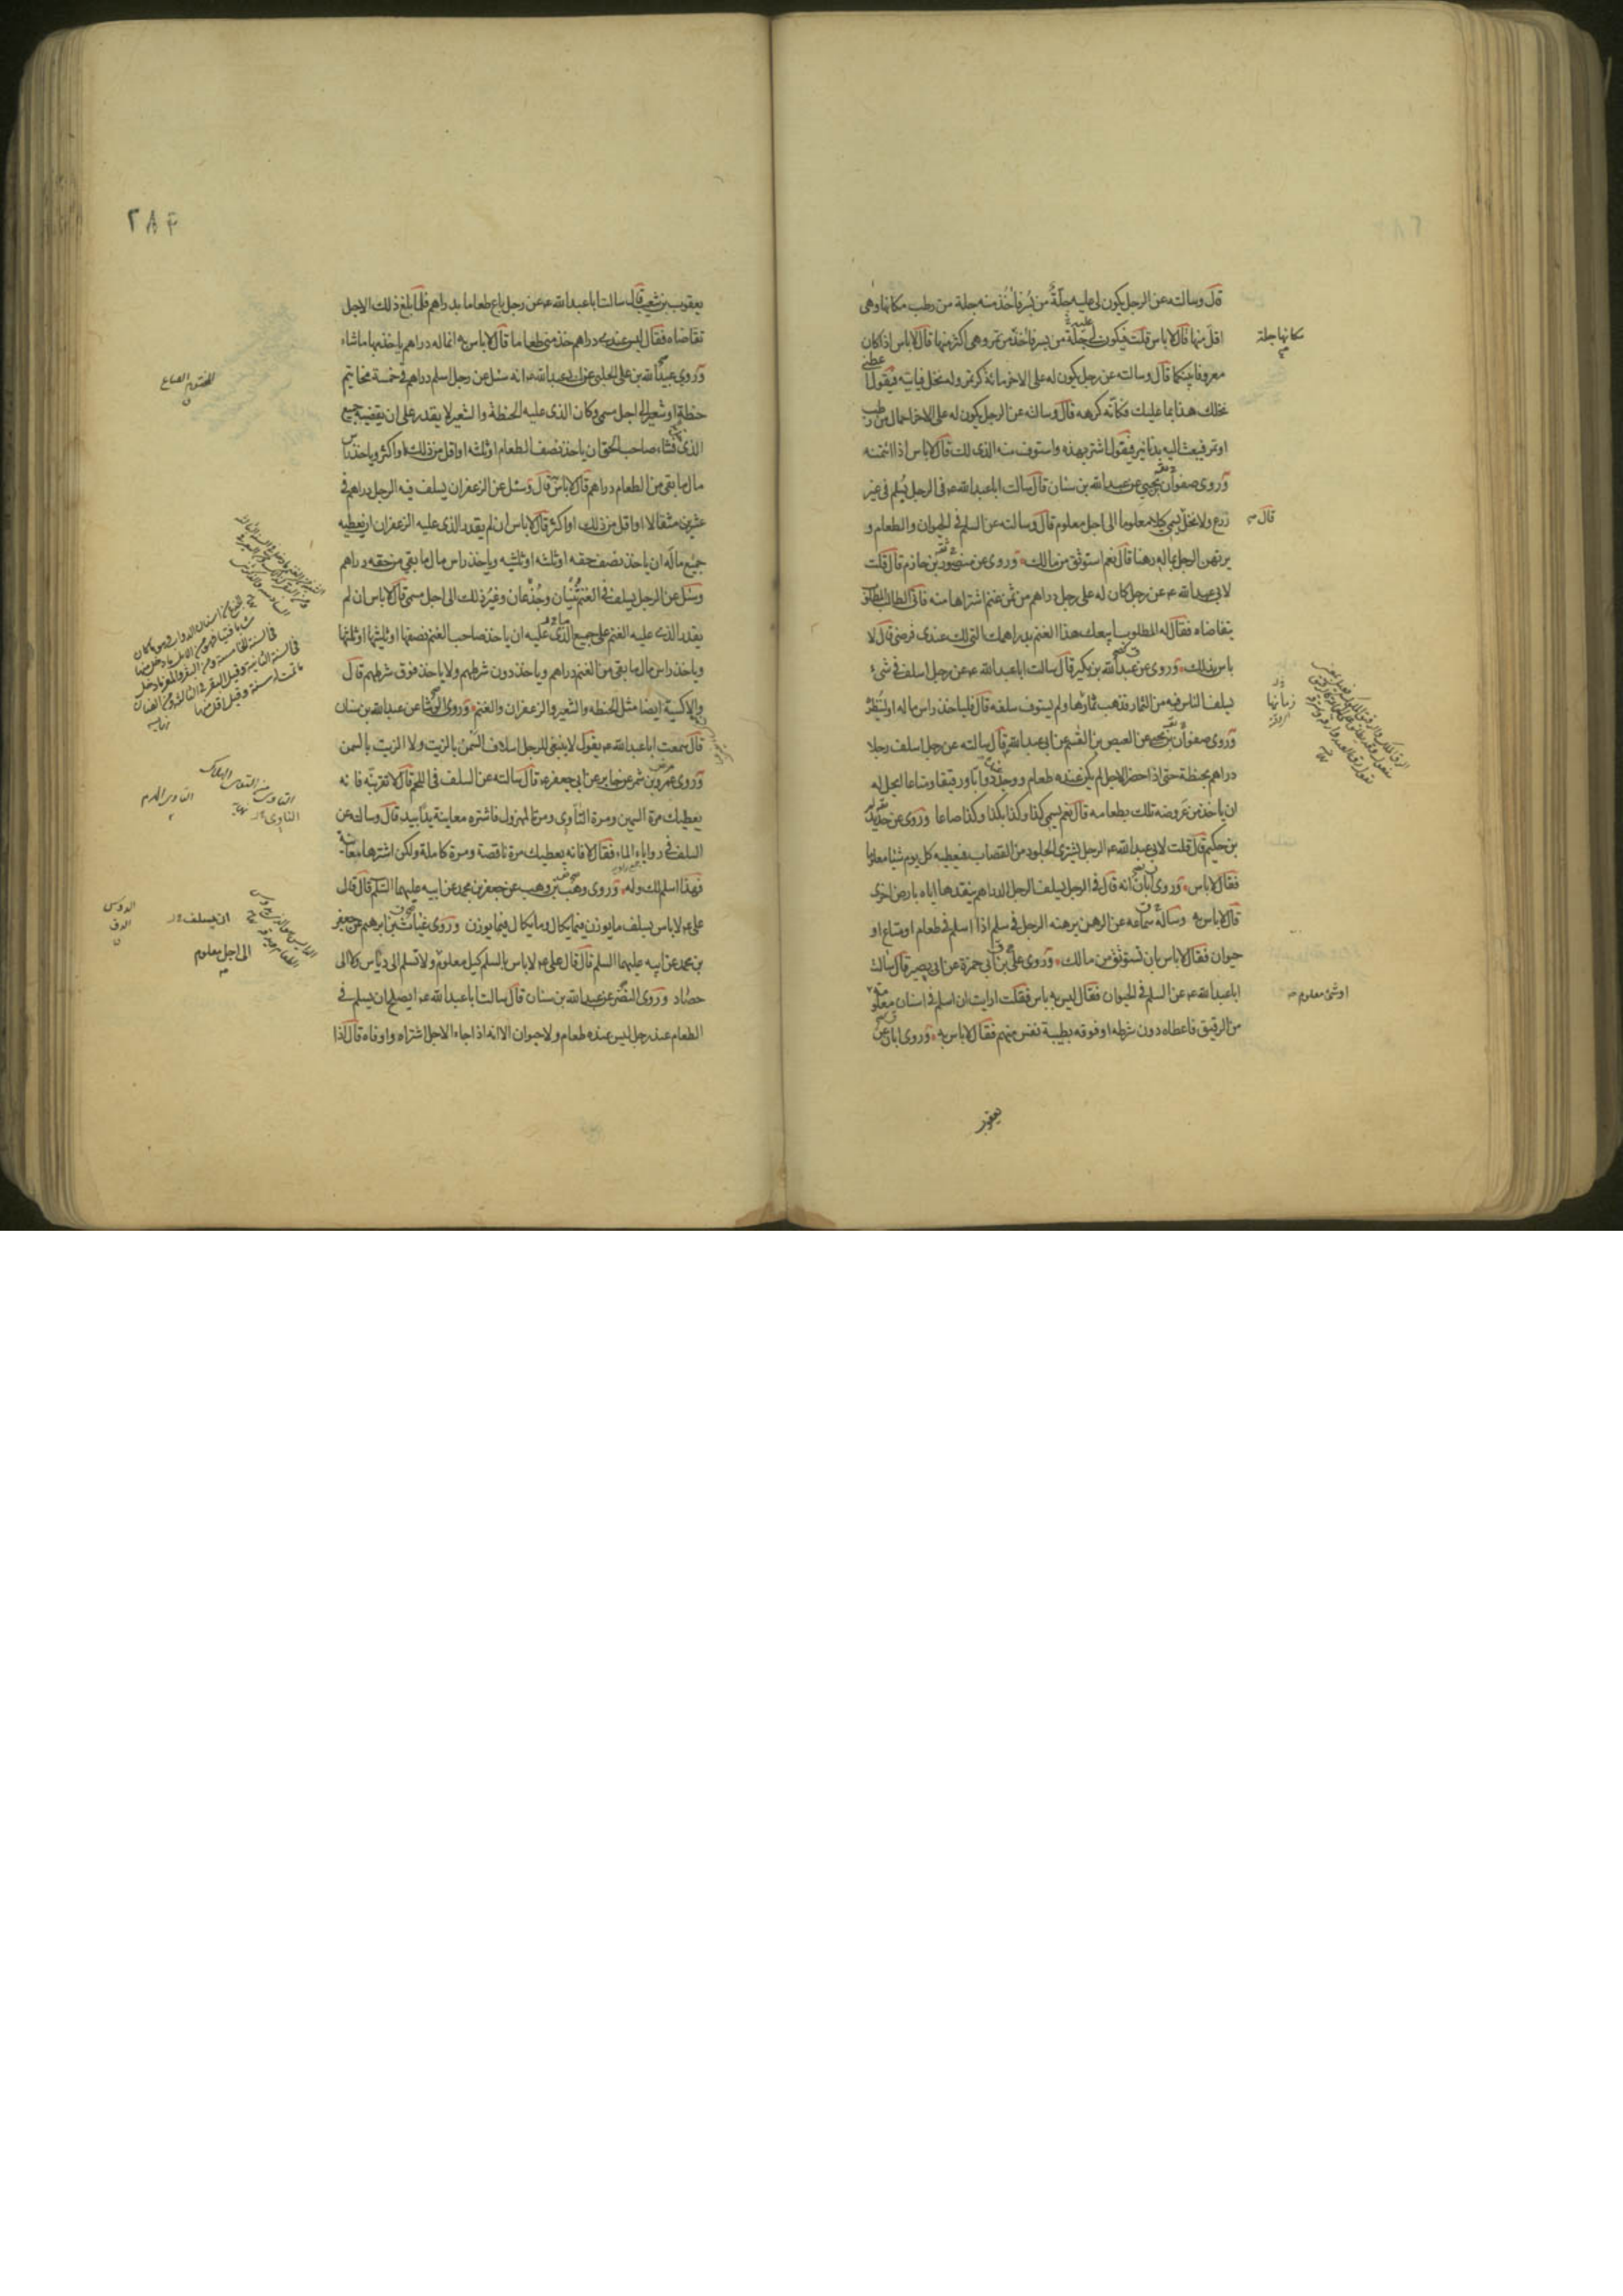 قال وسالته عن الرجل يكون لى عليه جلّة من بسر فآخذ منه جلة من رطب مكانها وهى
اقل منها قال لا باس قلت فيكون لى عليه جلّة من بسر فآخذ من تمر وهى اكثر منها قال لا باس اذا كان
معروفا بينكما قال وسالته عن رجل يكون له على الاخر مائة كر تمر وله نخل فياتيه فيقول اعطنى
نخلك هذا بما عليك فكأنه كرهه قال وسالته عن الرجل يكون له على الاخر احمال من رطب
او تمر فيبعث اليه بدنانير فيقول اشتر بهذه واستوف منه الذى لك قال لا باس اذا ائتمنه
وروى صفوان بن يحيى عن عبد الله بن سنان قال سالت ابا عبد الله ع عن الرجل يُسلم فى غير
زرع ولا نخل يسمى كيلا معلوما الى اجل معلوم قال وسالته عن السلم فى الحيوان والطعام و
يرتهن الرجل بماله رهنا قال نعم استوثق من مالك وروى عن منصور بن حازم قال قلت
لابى عبد الله ع عن رجل كان له على رجل دراهم من ثمن غنم اشتراها منه فاتى الطالب المطلوب
يتقاضاه فقال له المطلوب ابيعك هذا الغنم بدراهمك التى لك عندى فرضى قال لا
باس بذلك وروى عن عبد الله بن بكير قال سالت ابا عبد الله ع عن رجل اسلف فى شىء
يسلف الناس فيه من الثمار فذهب ثمارها ولم يستوف سلفه قال فلياخذ راس ماله او لينظره
وروى صفوان بن يحيى عن العيص بن القسم عن ابى عبد الله قال سالته عن رجل اسلف رجلا
دراهم بحنطة حتى اذا حضر الاجل لم يكن عنده طعام ووجد دوابّا ورقيقا ومتاعا ايحل له
ان ياخذ من عروضه تلك بطعامه قال نعم يسمى كذا وكذا بكذا وكذا صاعا وروى عن حديد
بن حكيم قال قلت لابى عبد الله ع الرجل يشترى الجلود من القصاب فيعطيه كل يوم شيئا معلوما
فقال لا باس وروى ابان انه قال فى الرجل يسلف الرجل الدراهم ينقدها اياه بارض اخرى
قال لا باس به وساله سماعه عن الرهن يرهنه الرجل فى سلم اذا اسلم فى طعام او متاع او
حيوان فقال لا باس بان تستوثق من مالك وروى على بن ابى حمزة عن ابى بصير قال سالت
ابا عبد الله ع عن السلم فى الحيوان فقال ليس به باس فقلت ارايت ان اسلم فى اسنان معلومة
من الرقيق فاعطاه دون شرطه او فوقه بطيبة نفس منهم فقال لا باس به وروى ابان عن
يعقوب
مكانها جلة
قال
زمانها
او شىء معلوم
٢٨٤
يعقوب بن شعيب قال سالت ابا عبد الله ع عن رجل باع طعاما بدراهم فلما بلغ ذلك الاجل
تقاضاه فقال ليس عندى دراهم خذ منى طعاما قال لا باس به انما له دراهم ياخذ بها ما شاء
وروى عبيد الله بن على الحلبى عن ابى عبد الله ع انه سئل عن رجل اسلم دراهم فى خمسة مخاتيم
حنطة او شعير الى اجل مسمى وكان الذى عليه الحنطة والشعير لا يقدر على ان يقضيه جميع
الذى له فشاء صاحب الحق ان ياخذ نصف الطعام او ثلثه او اقل من ذلك او اكثر وياخذ راس
مال ما بقى من الطعام دراهم قال لا باس قال وسئل عن الزعفران يسلف فيه الرجل دراهم فى
عشرين مثقالا او اقل من ذلك او اكثر قال لا باس ان لم يقدر الذى عليه الزعفران ان يعطيه
جميع ماله ان ياخذ نصف حقه او ثلثه او ثلثيه وياخذ راس مال ما بقى من حقه دراهم
وسئل عن الرجل يسلف فى الغنم ثُنيان وجُذعان وغير ذلك الى اجل مسمى قال لا باس ان لم
يقدر الذى عليه الغنم على جميع الذى عليه ان ياخذ صاحب الغنم نصفها او ثلثها او ثلثيها
وياخذ راس مال ما بقى من الغنم دراهم وياخذ دون شرطهم ولا ياخذ فوق شرطهم قال
والاكسية ايضا مثل الحنطه والشعير والزعفران والغنم وروى الوشا عن عبد الله بن سنان
قال سمعت ابا عبد الله ع يقول لا ينبغى للرجل اسلاف السمن بالزيت ولا الزيت بالسمن
وروى عمرو بن شمر عن جابر عن ابى جعفر ع قال سالته عن السلف فى اللحم قال لا تقربنّه فانه
يعطيك مرة السمين ومرة التاوى ومرة المهزول فاشتره معاينة يدًا بيد قال وسالته عن
السلف فى روايا الماء فقال لا فانه يعطيك مرة ناقصة ومرة كاملة ولكن اشترها معاينة
فهذا اسلم لك وله وروى وهب بن وهب عن جعفر بن محمد عن ابيه عليهما السلم قال قال
على ع لا باس بسلف ما يوزن فيما يكال وما يكال فيما يوزن وروى غياث بن ابرهيم عن جعفر
بن محمد عن ابيه عليهما السلم قال قال على ع لا باس بالسلم كيل معلوم ولا تسلم الى دياس ولا الى
حصاد وروى النضر عن عبد الله بن سنان قال سالت ابا عبد الله ع ايصلح ان يسلم فى
الطعام عند رجل ليس عنده طعام ولا حيوان الا انه اذا جاء الاجل اشتراه واوفاه قال اذا
المختوم الصاع
ان يسلف
الى اجل معلوم
الدوس
الدق